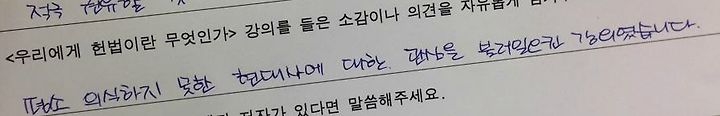 적극 권유할
<우리에게 헌법이란 무엇인가> 강의를 들은 소감이나 의견을 자유롭게
평소 의식하지 못한 현대사에 대한 관심을 불러일으킨 강의였습니다.
저자가 있다면 말씀해주세요.